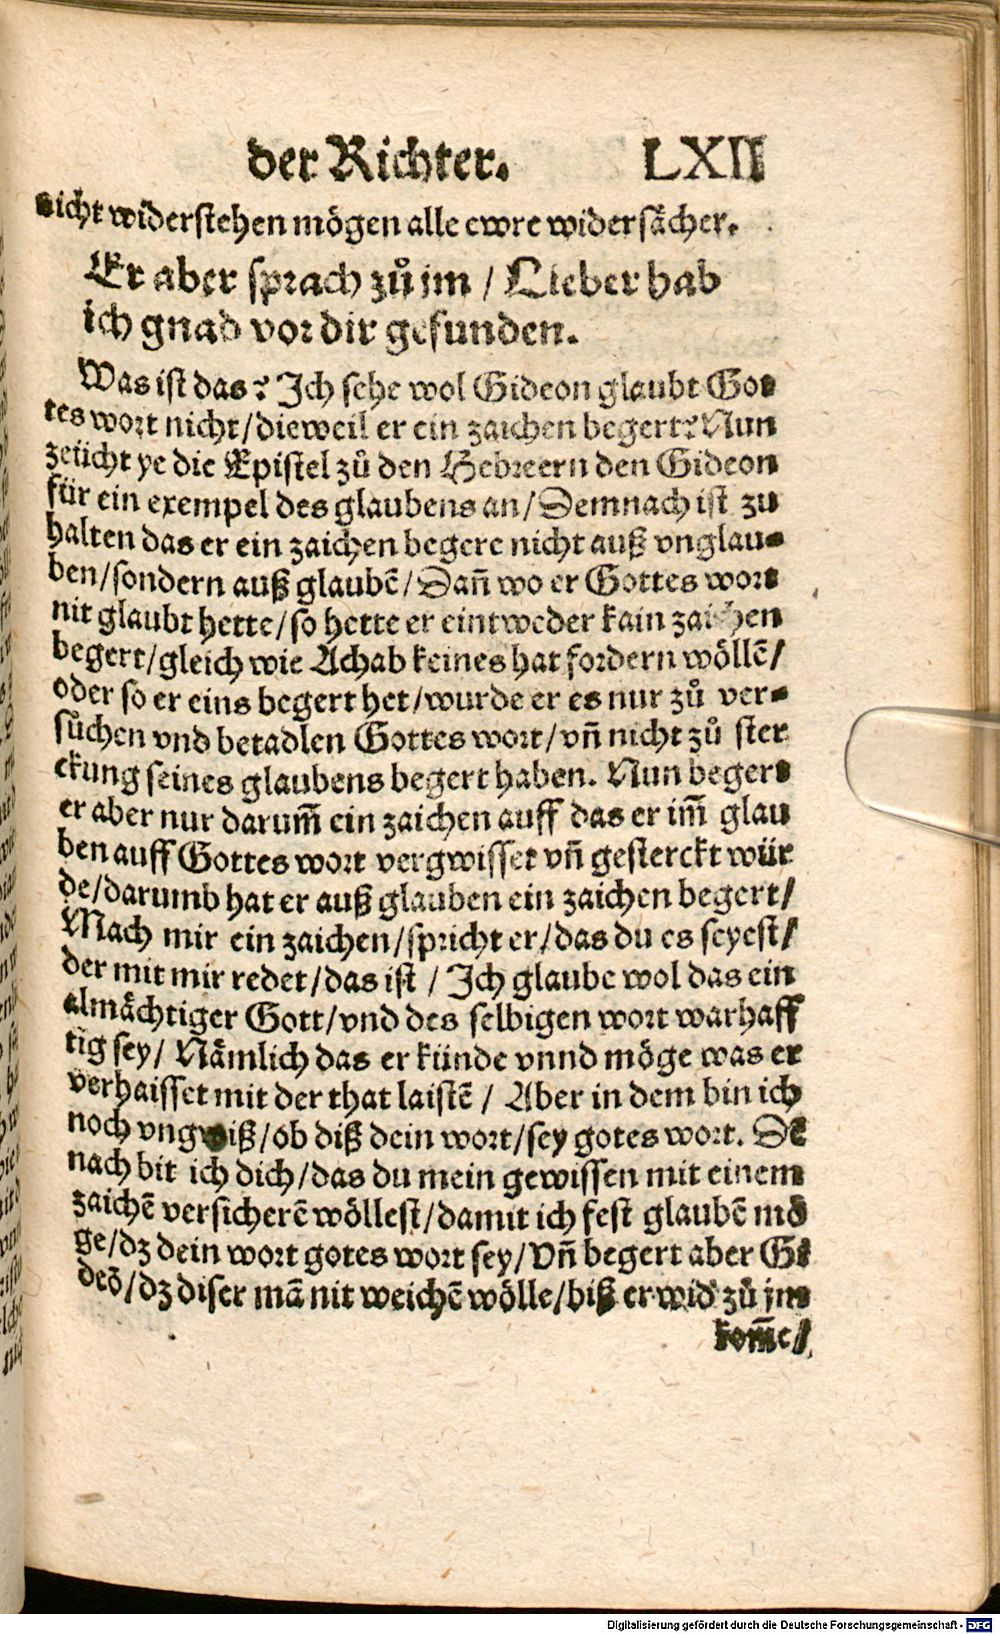 der Richter. LXII
nicht widerstehen mögen alle ewre widersächer.
Er aber sprach zů jm / Lieber hab
ich gnad vor dir gefunden.
Was ist das? Jch sehe wol Gideon glaubt Got
tes wort nicht / dieweil er ein zaichen begert? Nun
zeücht ye die Epistel zů den Hebreern den Gideon
für ein exempel des glaubens an / Demnach ist zu
halten das er ein zaichen begere nicht auß vnglau-
ben / sondern auß glaubē / Dañ wo er Gottes wort
nit glaubt hette / so hette er eintweder kain zaichen
begert / gleich wie Achab keines hat fordern wöllē /
oder so er eins begert het / wurde er es nur zů ver-
sůchen vnd betadlen Gottes wort / vñ nicht zů ster
ckung seines glaubens begert haben. Nun begert
er aber nur darum̃ ein zaichen auff das er im̃ glau
ben auff Gottes wort vergwisset vñ gesterckt wür
de / darumb hat er auß glauben ein zaichen begert /
Mach mir ein zaichen / spricht er / das du es seyest /
der mit mir redet / das ist / Jch glaube wol das ein
almächtiger Gott / vnd des selbigen wort warhaff
tig sey / Nämlich das er künde vnnd möge was er
verhaisset mit der that laistē / Aber in dem bin ich
noch vngwiß / ob diß dein wort / sey gotes wort. Dē
nach bit ich dich / das du mein gewissen mit einem
zaichē versicherē wöllest / damit ich fest glaubē mö
ge / dz dein wort gotes wort sey / Vñ begert aber Gi
deō / dz diser mā nit weichē wölle / biß er wid̕ zů jm
kom̃e /
Digitalisierung gefördert durch die Deutsche Forschungsgemeinschaft - DFG